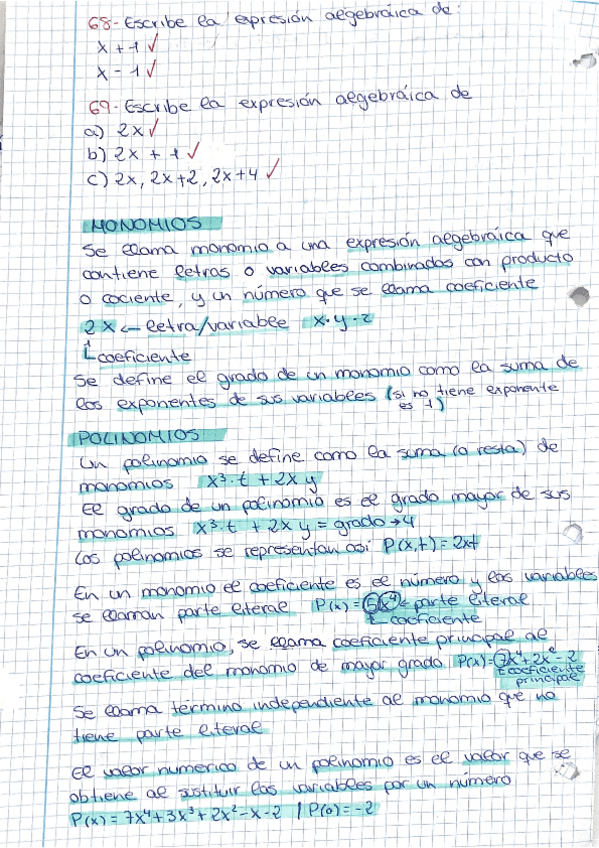 68-Escribe la expresión algebráica de:
x + 1 ✓
x - 1 ✓
69-Escribe la expresión algebráica de
a) 2x ✓
b) 2x + 1 ✓
c) 2x, 2x+2, 2x+4 ✓
MONOMIOS
Se llama monomio a una expresión algebráica que
contiene letras o variables combinadas con producto
o cociente, y un número que se llama coeficiente
2x ← letra/variable x·y·z
coeficiente
Se define el grado de un monomio como la suma de
los exponentes de sus variables (si no tiene exponente
es 1)
POLINOMIOS
Un polinomio se define como la suma (o resta) de
monomios x³·t + 2xy
El grado de un polinomio es el grado mayor de sus
monomios x³·t + 2xy = grado → 4
Los polinomios se representan así P(x,t) = 2xt
En un monomio el coeficiente es el número y las variables
se llaman parte literal P(x) = 5x⁴ ← parte literal
coeficiente
En un polinomio, se llama coeficiente principal al
coeficiente del monomio de mayor grado P(x)=7x⁴+2x²-2
coeficiente
principal
Se llama término independiente al monomio que no
tiene parte literal
El valor numerico de un polinomio es el valor que se
obtiene al sustituir las variables por un número
P(x) = 7x⁴+3x³+2x²-x-2 / P(0) = -2